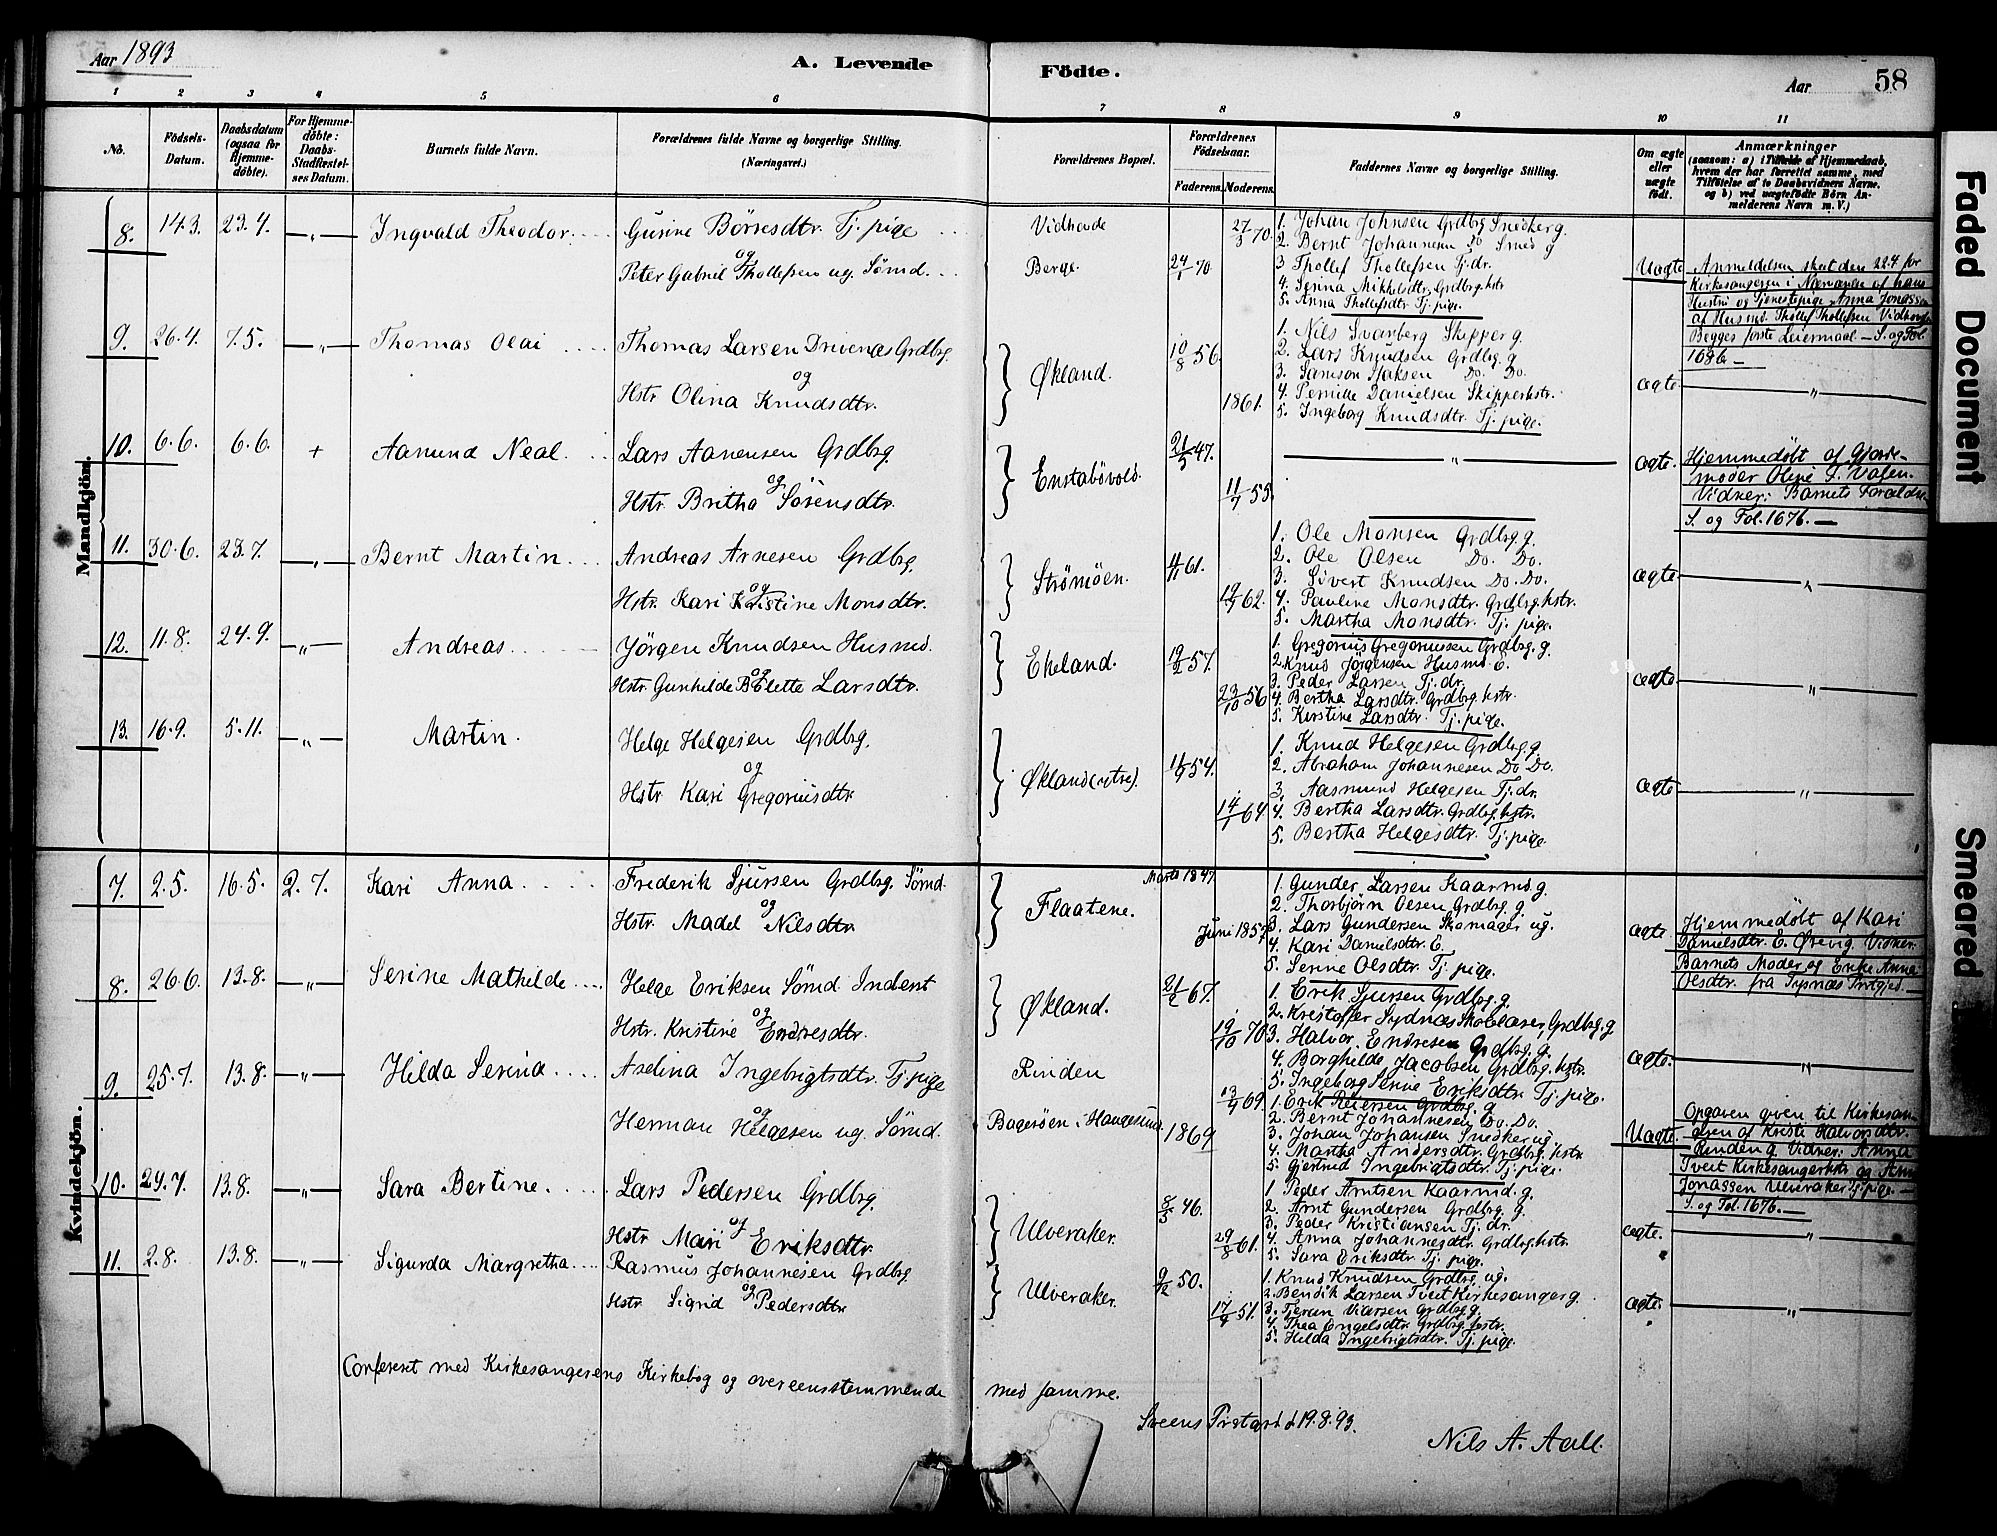 Aar 1893
A. Levende Födte.
Aar 58
1 2 3 4 5 6 7 8 9 10 11
No.
Födsels-Datum.
Daabsdatum (ogsaa for Hjemme-döbte).
For Hjemme-döbte: Daabs-Stadfæstel-ses Datum.
Barnets fulde Navn.
Forældrenes fulde Navne og borgerlige Stilling. (Næringsvei.)
Forældrenes Bopæl.
Forældrenes Födselsaar.
Faderens. Moderens.
Faddernes Navne og borgerlige Stilling.
Om ægte eller uægte födt.
Anmærkninger
(saasom: a) i Tilfælde af Hjemmedaab,
hvem der har forrettet samme, med
Tilföielse af to Daabsvidners Navne.
og b) ved uægtefödte Börn An-
melderens Navn m. V.)
Mandkjön.
8. 14.3. 23.4. — „ — Ingvald Theodor. Gurine Börresdtr. Tj. pige
og
Peter Gabriel Thollefsen ug. Sömd.
Vidhovde
Berge.
24/1 70
27/3 70.
1. Johan Johnsen Grdbrg Snedker g.
2. Bernt Johannesen Do Smed g
3 Thollef Thollefsen Tj. dr.
4. Serina Mikkelsdtr. Grdbrg. hstr
5. Anna Thollefsdtr Tj. pige.
Uægte
Anmeldelsen skeet den 22.4 for
Kirkesangeren i Nærværelse af hans
Hustru og Tjenestepige Anna Jonassen
af Husmd. Thollef Thollefsen Vidhovde
Begges förste Leiermaal — S. og Fol.
1686 —
9. 26.4. 7.5. — „ — Thomas Olai Thomas Larsen Drivenes Grdbrg.
og
Hstr Olina Knudsdtr.
Økland.
10/8 56.
1861.
1. Nils Svarberg Skipper g.
2. Lars Knudsen Grdbrg. g
3. Samson Isaksen Do. Do.
4. Pernille Danielsen Skipperhstr.
5. Ingeborg Knudsdtr. Tj. pige.
ægte „
10. 6.6. 6.6. + Aamund Neal. Lars Aanensen Grdbrg.
og
Hstr. Britha Sörensdtr.
Enstabövold.
21/5 47.
11/7 55.
— „ —
ægte.
Hjemmedöbt af Gjorde-
moder Oline S. Valen.
Vidner: Barnets Forældre.
S. og Fol. 1676. —
11. 30.6. 23.7. — „ — Bernt Martin Andreas Arnesen Grdbrg.
og
Hstr. Kari Kristine Monsdtr.
Strömöen.
4/11 61.
19/9 62.
1. Ole Monsen Grdbrg. g.
2. Ole Olsen Do. Do.
3. Sivert Knudsen Do. Do.
4. Pauline Monsdtr. Grdbrg. hstr.
5. Martha Monsdtr. Tj. pige.
ægte „
12. 11.8. 24.9. — „ — Andreas Jörgen Knudsen Husmd.
og
Hstr. Gunhilde B. Elette Larsdtr.
Ekeland.
19/2 57.
23/10 56
1. Gregorius Gregoriussen Grdbrg. g.
2. Knud Jörgensen Husmd. E.
3. Peder Larsen Tj. dr.
4. Bertha Larsdtr. Grdbrg hstr.
5. Kirstine Larsdtr. Tj. pige.
ægte „
13. 16.9. 5.11. — „ — Martin. Helge Helgesen Grdbrg.
og
Hstr Kari Gregoriusdtr.
Økland (ytre).
11/9 54.
14/1 64.
1. Knud Helgesen Grdbrg. g.
2. Abraham Johannesen Do. Do.
3. Aasmund Helgesen Tj. dr.
4. Bertha Larsdtr. Grdbrg. hstr.
5. Bertha Helgesdtr. Tj. pige.
ægte „
Kvindekjön.
7. 2.5. 16.5. 2.7. Kari Anna Frederik Sjursen Grdbrg. Sömd.
og
Hstr. Madel Nilsdtr.
Flaatene.
Marts 1847.
Juni 1857.
1. Gunder Larsen Kaarmd. g.
2. Thorbjörn Olsen Grdbrg. g
3. Lars Gundersen Skomager ug.
4. Kari Danielsdtr. E.
5. Serine Olsdtr. Tj. pige.
ægte.
Hjemmedöbt af Kari
Danielsdtr. E. Ørevig. Vidner:
Barnets Moder og Enke Anna
Olsdtr. fra Tysnæs Prstgjed.
8. 26.6. 13.8. — „ — Serine Mathilde Helge Eriksen Sömd. Inderst
og
Hstr. Kristine Endresdtr.
Økland.
21/2 67.
19/10 70
1. Erik Sjursen Grdbrg. g.
2. Kristoffer Sydnæs Skolelærer, Grdbrg. g
3. Halvor Endresen Grdbrg. g.
4. Borghilde Jacobsen Grdbrg. hstr.
5. Ingeborg Serine Eriksdtr Tj. pige.
ægte. „
9. 25.7. 13.8. — „ — Hilda Serina Axelina Ingebrigtsdtr. Tj. pige
og
Herman Helgesen ug. Sömd.
Rinden
Bagerøen i Haugesund.
1869
13/9 69.
1. Erik Reiersen Grdbrg. g
2. Bernt Johannesen Do. Do.
3. Johan Johansen Snedker ug.
4. Martha Andersdtr. Grdbrg. hstr
5. Gjertrud Ingebrigtsdtr. Tj. pige.
Uægte.
Opgaven given til Kirkesan-
geren af Kristi Halvorsdtr.
Rinden g. Vidner: Anna
Tveit Kirkesangerhstr og Anna
Jonassen Ulveraker Tj. pige. —
S. og Fol. 1676. —
10. 29.7. 13.8. — „ — Sara Bertine. Lars Pedersen Grdbrg.
og
Hstr Mari Eriksdtr.
Ulveraker.
8/3 46.
29/8 61.
1 Peder Arntsen Kaarmd. g.
2. Arnt Gundersen Grdbrg. g.
3. Peder Kristiansen Tj. dr.
4. Anna Johannesdtr. Grdbrg. hstr.
5. Sara Eriksdtr. Tj. pige.
ægte. „
11. 2.8. 13.8. — „ — Sigurda Margretha Rasmus Johannesen Grdbrg
og
Hstr Sigrid Pedersdtr.
Ulveraker.
9/12 50.
17/4 51.
1. Knud Knudsen Grdbrg. ug.
2. Bendik Larsen Tveit Kirkesanger g.
3. Tjeran Viarsen Grdbrg. g.
4. Thea Engelsdtr. Grdbrg. hstr.
5. Hilda Ingebrigtsdtr. Tj. pige.
ægte. „
Confereret med Kirkesangerens Kirkebog og overeensstemmende med samme.
Sveens Prstgrd d 19.8.93.
Nils A. Aall.
Faded Document
Smeared